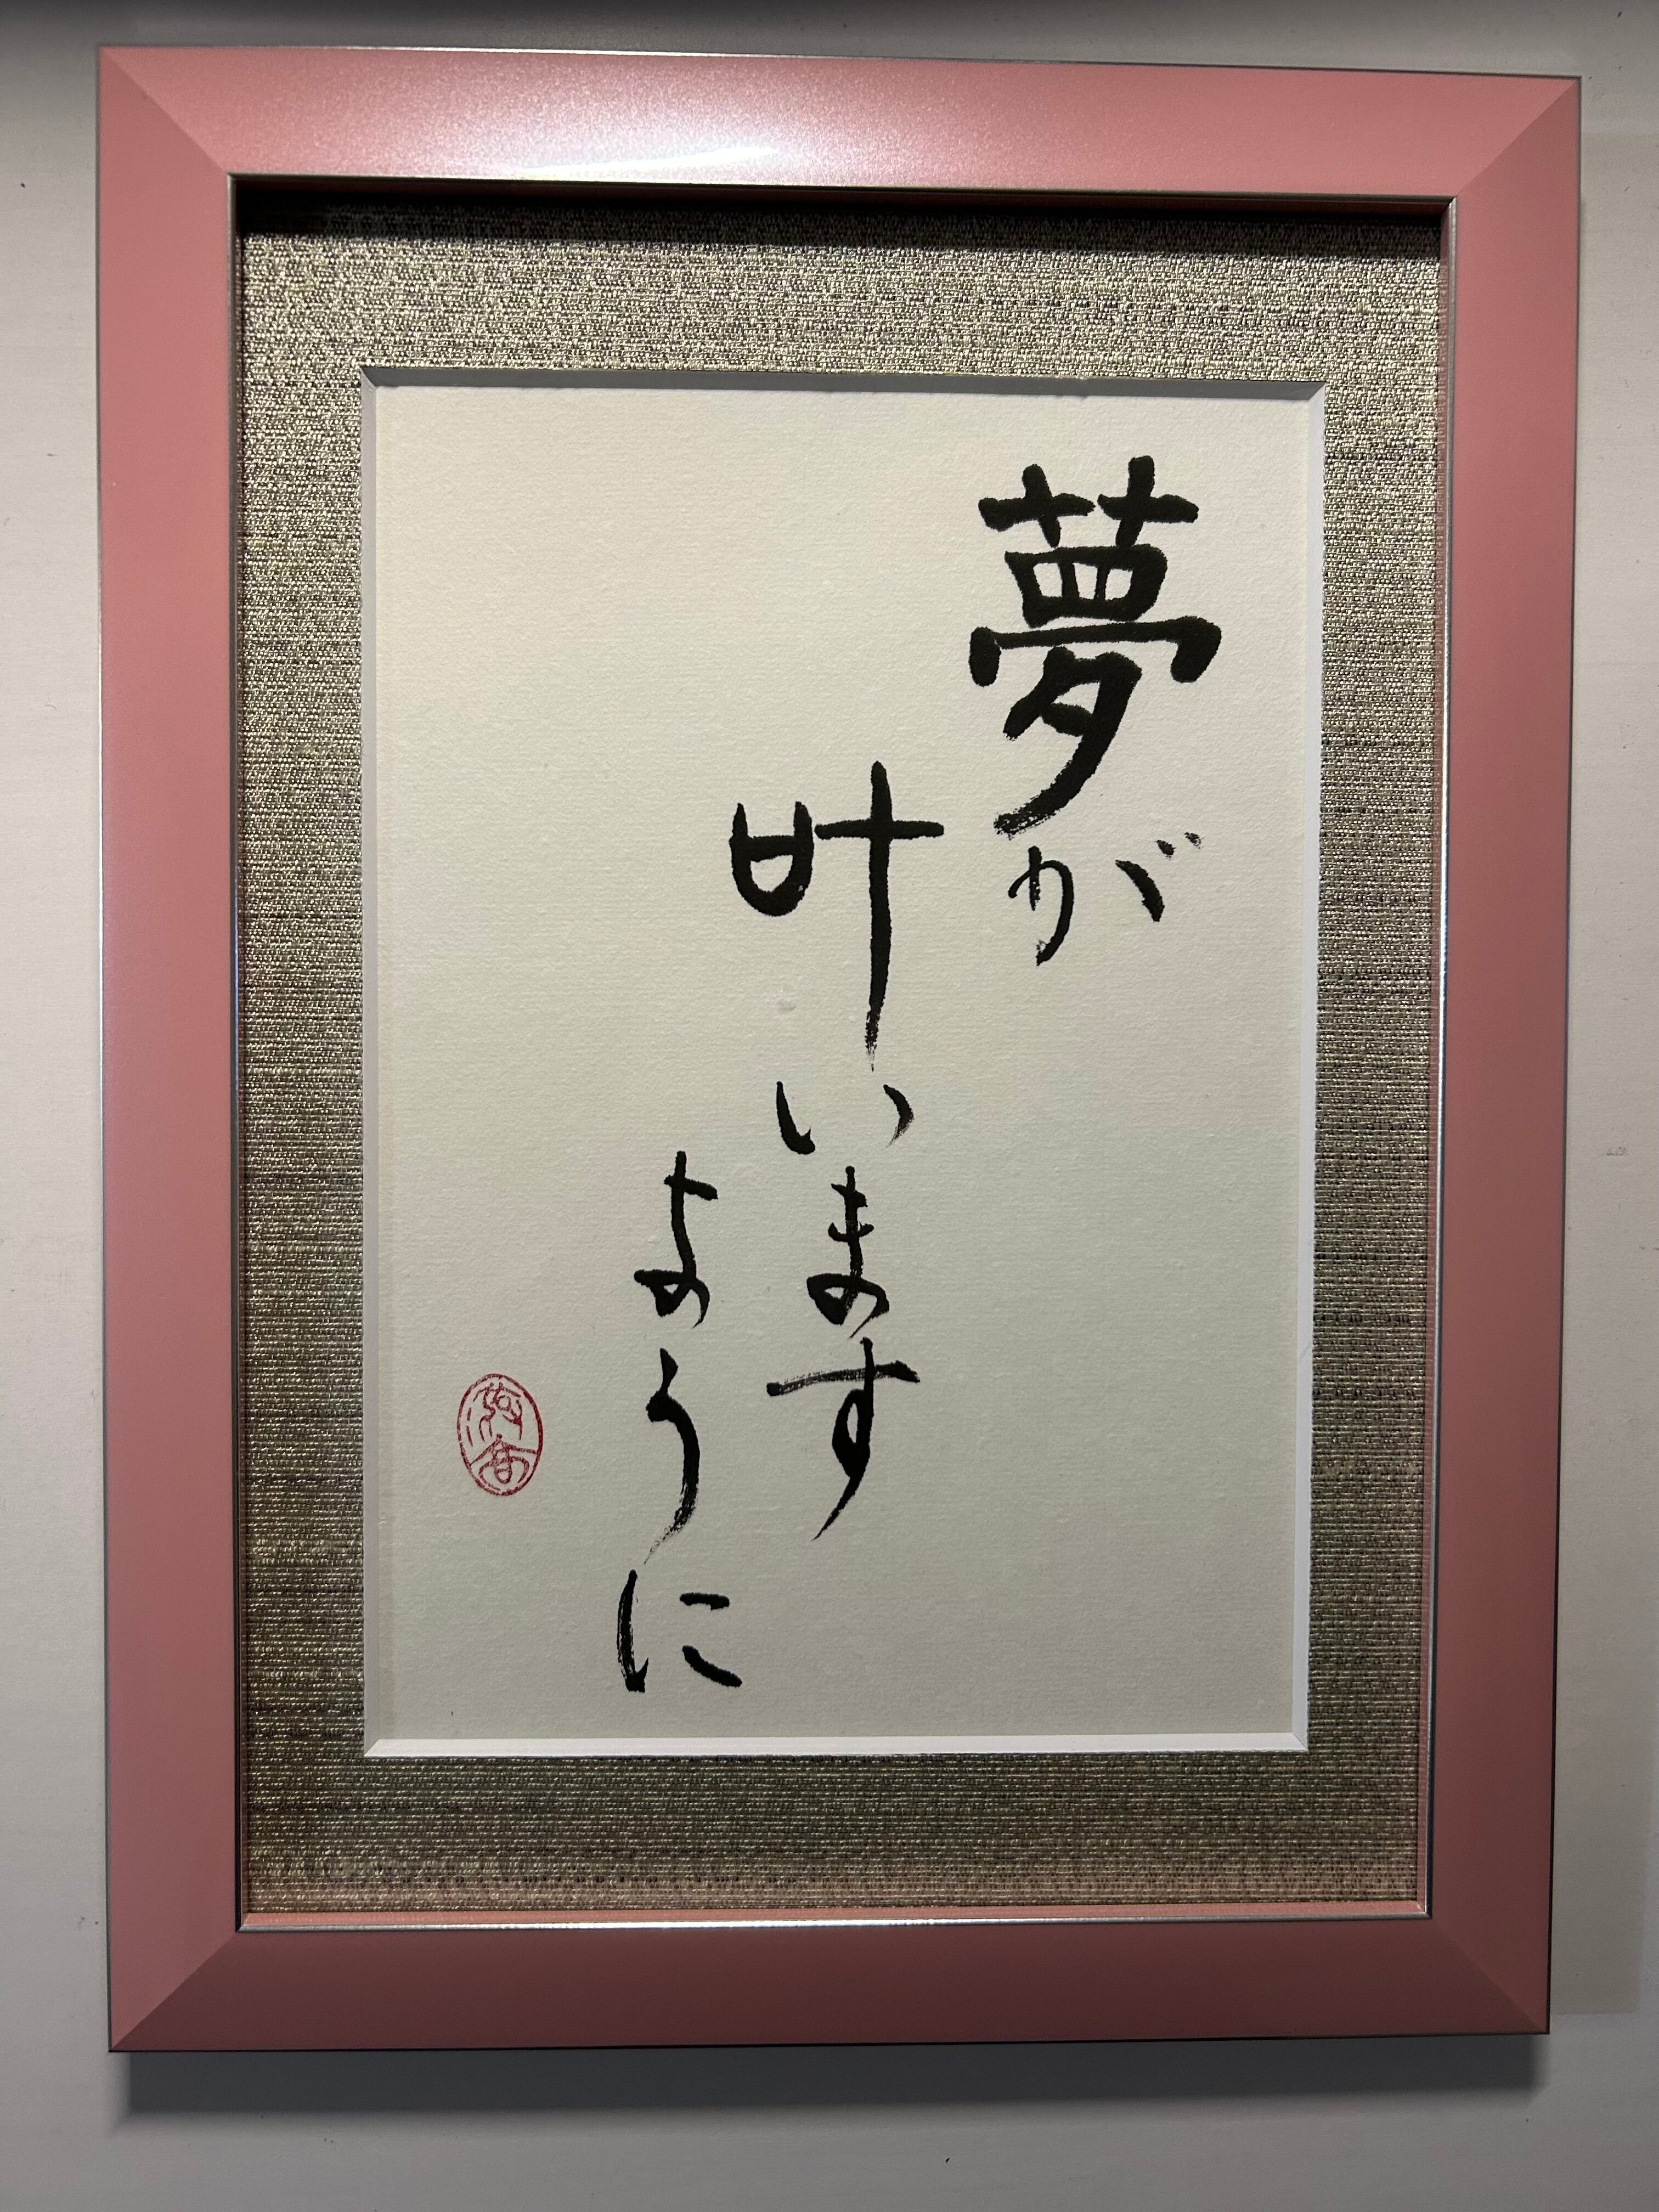 夢が
叶います
ように